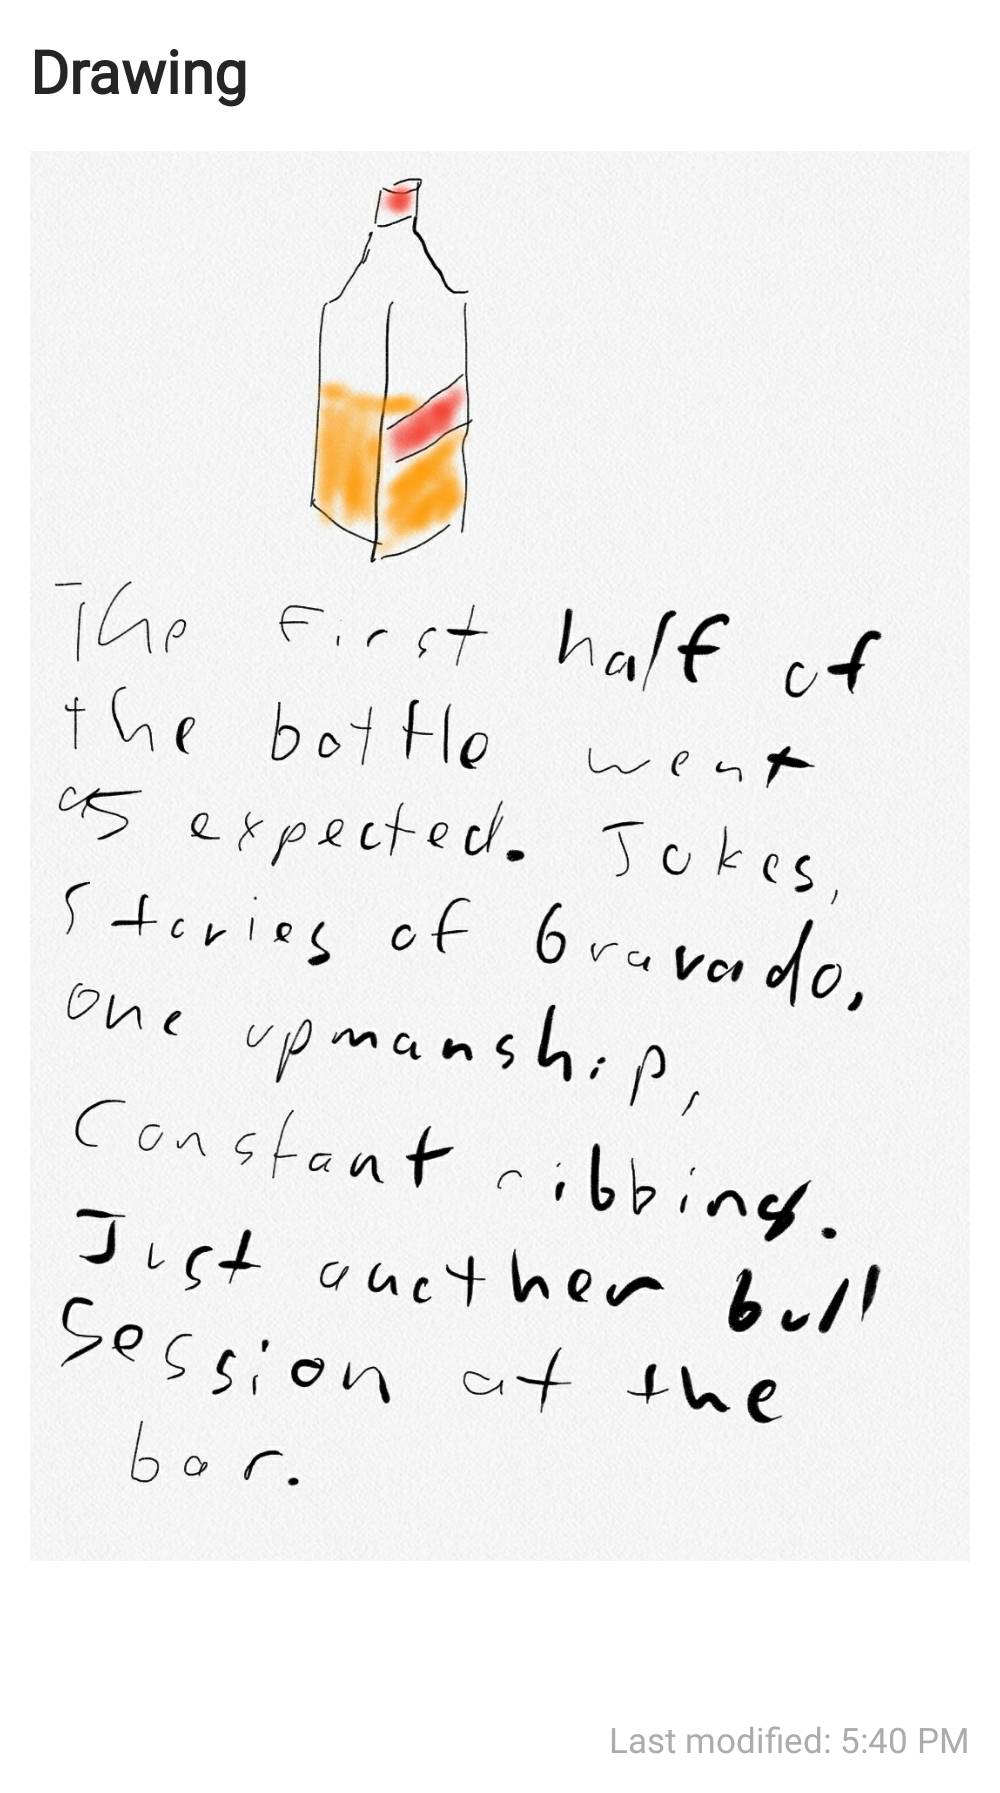 Drawing
The First half of
the bottle went
as expected. Jokes,
Stories of bravado,
one upmanship,
Constant ribbing.
Just another bull
Session at the
bar.
Last modified: 5:40 PM